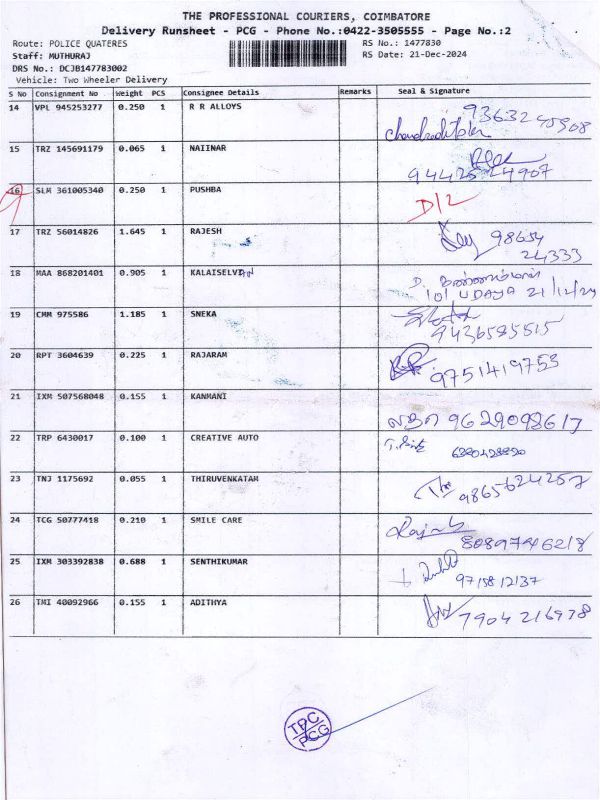 THE PROFESSIONAL COURIERS, COIMBATORE
Delivery Runsheet - PCG - Phone No.:0422-3505555 - Page No.:2
Route: POLICE QUATERES RS No.: 1477830
Staff: MUTHURAJ RS Date: 21-Dec-2024
DRS No.: DCJB147783002
Vehicle: Two Wheeler Delivery
S No Consignment No Weight PCS Consignee Details Remarks Seal & Signature
14 VPL 945253277 0.250 1 R R ALLOYS
15 TRZ 145691179 0.065 1 NAIINAR
16 SLM 361005340 0.250 1 PUSHBA D/2
17 TRZ 56014826 1.645 1 RAJESH 98654
24333
18 MAA 868201401 0.905 1 KALAISELVI D.
101 UDAYA 21/12/24
19 CMM 975586 1.185 1 SNEKA
9436585515
20 RPT 3604639 0.225 1 RAJARAM 9751419753
21 IXM 507568048 0.155 1 KANMANI
9629098617
22 TRP 6430017 0.100 1 CREATIVE AUTO
23 TNJ 1175692 0.055 1 THIRUVENKATAR
9865624257
24 TCG 50777418 0.210 1 SMILE CARE
8089746218
25 IXM 303392838 0.688 1 SENTHIKUMAR
9715812137
26 TMI 40092966 0.155 1 ADITHYA
7904216978
TPC
PCG